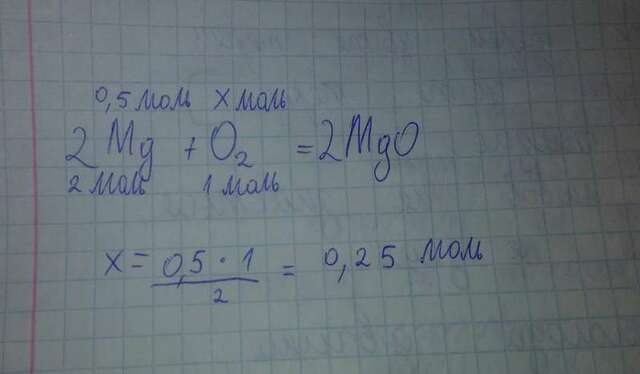 0,5 моль х моль
2 Mg + O₂ = 2MgO
2 моль 1 моль
х = 0,5 · 1 / 2 = 0,25 моль